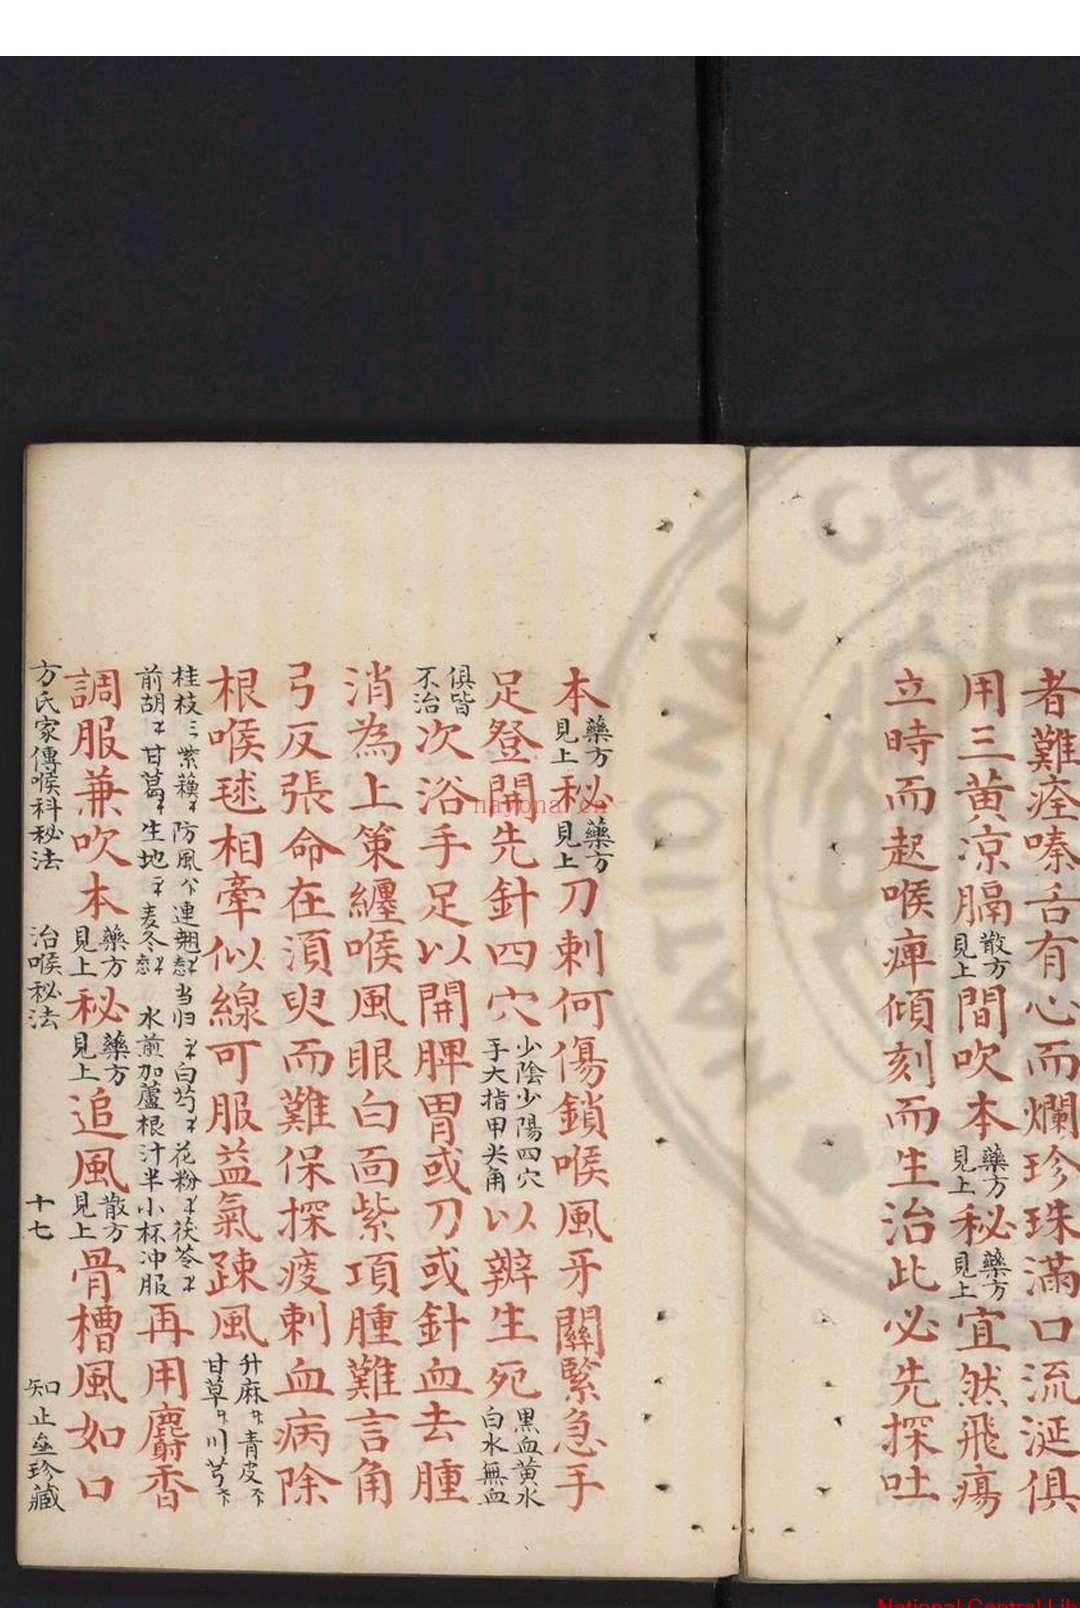 者難痊嗪舌有心而爛珍珠滿口流涎俱
用三黃凉膈散方見上間吹本藥方見上秘藥方見上宜然飛瘍
立時而起喉痺傾刻而生治此必先探吐
本藥方見上秘藥方見上刀刺何傷鎖喉風牙關緊急手
足登開先針四穴少陰少陽四穴手大指甲尖角以辨生死黑血黄水白水無血
俱皆不治次浴手足以開脾胃或刀或針血去腫
消為上策纏喉風眼白面紫項腫難言角
弓反張命在須臾而難保探痰刺血病除
根喉毬相牽似線可服益氣疎風升麻青皮甘草川芎
桂枝紫蘓防風連翹当归白芍花粉茯苓
前胡甘葛生地麦冬水煎加蘆根汁半小杯冲服再用麝香
調服兼吹本藥方見上秘藥方見上追風散方見上骨槽風如口
方氏家傳喉科秘法 治喉秘法 十七 知止盦珍藏
NATIONAL CENT
nayona.cn
National Central Lib